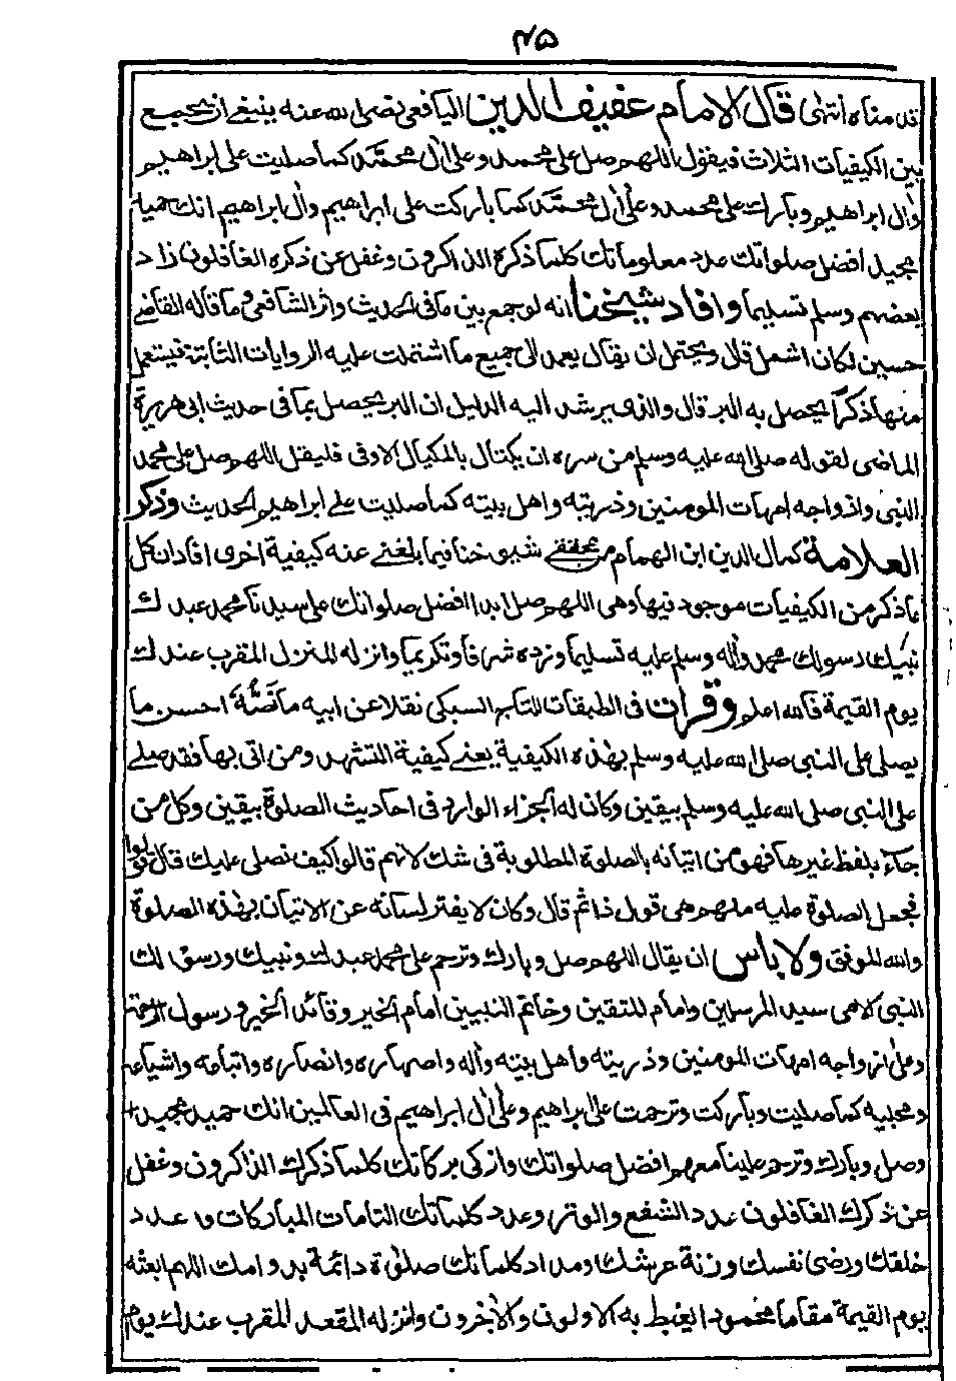 ٤٥
قدمناه انتهى قال الامام عفيف الدين اليافعي رضى الله عنه ينبغى ان يجمع
بين الكيفيات الثلاث فيقول اللهم صل على محمد وعلى ال محمد كما صليت على ابراهيم
وال ابراهيم وبارك على محمد وعلى ال محمد كما باركت على ابراهيم وال ابراهيم انك حميد
مجيد افضل صلواتك عدد معلوماتك كلما ذكره الذاكرون وغفل عن ذكره الغافلون زاد
بعضهم وسلم تسليما وافاد شيخنا انه لو جمع بين ما فى الحديث واثر الشافعى وما قاله القاضى
حسين لكان اشمل قال ويحتمل ان يقال يعمد الى جميع ما اشتملت عليه الروايات الثابتة فيستعمل
منها ذكرا يحصل به البر قال والذى يرشد اليه الدليل ان البر يحصل بما فى حديث ابى هريرة
الماضى لقوله صلى الله عليه وسلم من سره ان يكتال بالمكيال الاوفى فليقل اللهم صل على محمد
النبى وازواجه امهات المومنين وذريته واهل بيته كما صليت على ابراهيم الحديث وذكر
العلامة كمال الدين ابن الهمام من محققى شيوخنا فيما بلغنى عنه كيفية اخرى افاد ان كل
ما ذكر من الكيفيات موجود فيها وهى اللهم صل ابدا افضل صلواتك على سيدنا محمد عبدك
نبيك رسولك محمد واله وسلم عليه تسليما وزده شرفا وتكريما وانزله المنزل المقرب عندك
يوم القيمة فالله اعلم وقرات فى الطبقات للتاج السبكى نقلا عن ابيه ما نصه احسن ما
يصلى على النبى صلى الله عليه وسلم بهذه الكيفية يعنى كيفية التشهد ومن اتى بها فقد صلى
على النبى صلى الله عليه وسلم بيقين وكان له الجزاء الوارد فى احاديث الصلوة بيقين وكل من
جاء بلفظ غيرها فهو من اتيانه بالصلوة المطلوبة فى شك لانهم قالوا كيف نصلى عليك قال قولوا
فجعل الصلوة عليه منهم هى قول ذا ثم قال وكان لا يفتر لسانه عن الاتيان بهذه الصلوة
والله الموفق ولا باس ان يقال اللهم صل وبارك وترحم على محمد عبدك ونبيك ورسولك
النبى الامى سيد المرسلين وامام المتقين وخاتم النبيين امام الخير وقائد الخير ورسول الرحمة
وعلى ازواجه امهات المومنين وذريته واهل بيته واله واصهاره وانصاره واتباعه واشياعه
ومحبيه كما صليت وباركت وترحمت على ابراهيم وعلى ال ابراهيم فى العالمين انك حميد مجيد
وصل وبارك وترحم علينا معهم افضل صلواتك وازكى بركاتك كلما ذكرك الذاكرون وغفل
عن ذكرك الغافلون عدد الشفع والوتر وعدد كلماتك التامات المباركات وعدد
خلقك ورضى نفسك وزنة عرشك ومداد كلماتك صلوة دائمة بدوامك اللهم ابعثه
يوم القيمة مقاما محمودا يغبطه به الاولون والاخرون وانزله المقعد المقرب عندك يوم